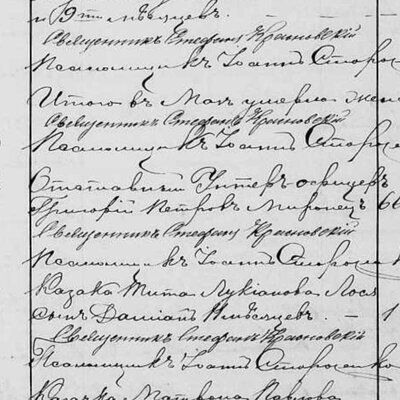 и 9ти мѣсяцевъ.
Священникъ Стефанъ Красновскій
Псаломщикъ Іоаннъ Сторо
Итого въ Маѣ умерло жен
Священникъ Стефанъ Красновскій
Псаломщикъ Іоаннъ Стороже
Отставный Унтеръ-офицеръ
Григорій Петровъ Миронецъ 66
Священникъ Стефанъ Красновскій
Псаломщикъ Іоаннъ Стороже
Казака Тита Лукіанова
сынъ Даміанъ мѣсяцевъ. – 1
Священникъ Стефанъ Красновскій
Псаломщикъ Іоаннъ Стороженко
Казачка Матрона Павлова